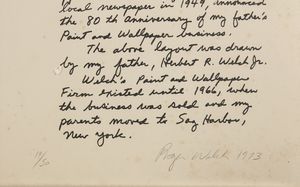 local newspaper in 1949, announced
the 80th anniversary of my father's
Paint and Wallpaper business.
The above layout was drawn
by my father, Herbert R. Welch Jr.
Welch's Paint and Wallpaper
Firm existed until 1966, when
the business was sold and my
parents moved to Sag Harbor,
New York.
Roger Welch 1973
/50